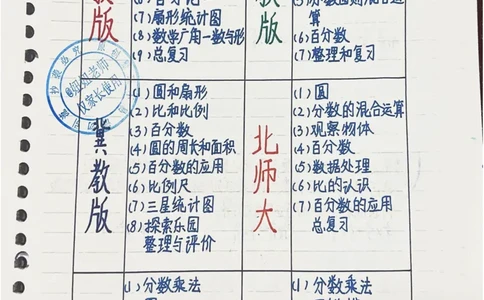 版
(7)扇形统计图
(8)数学广角一数与形
(9)总复习
版
算
(6)百分数
(7)整理和复习
冀教版
(1)圆和扇形
(2)比和比例
(3)百分数
(4)圆的周长和面积
(5)百分数的应用
(6)比例尺
(7)三星统计图
(8)探索乐园
整理与评价
北师大
(1)圆
(2)分数的混合运算
(3)观察物体
(4)百分数
(5)数据处理
(6)比的认识
(7)百分数的应用
总复习
(1)分数乘法
(1)分数乘法
仅家长使用